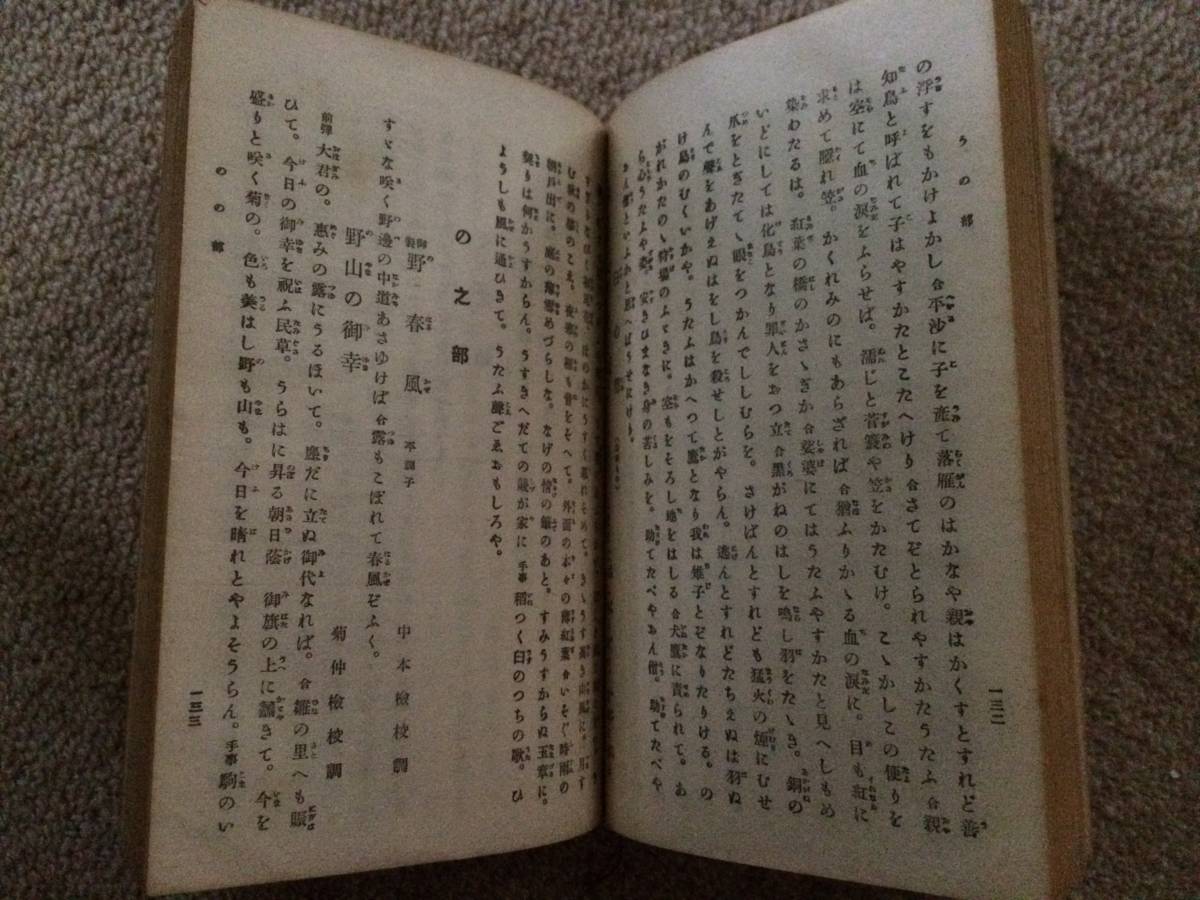 うの部
一三二
の浮すをもかけよかし合平沙に子を産て落雁のはかなや親はかくすとすれど善
知鳥と呼ばれて子はやすかたとこたへけり合さてぞとられやすかたうたふ合親
は空にて血の涙をふらせば。濡じと菅簑や笠をかたむけ。こゝかしこの便りを
求めて隠れ笠。かくれみのにもあらざれば合猶ふりかゝる血の涙に。目も紅に
染わたるは。紅葉の橋のかさゝぎか合娑婆にてはうたふやすかたと見へしもめ
いどにしては化鳥となり罪人をおつ立合黒がねのはしを鳴し羽をたゝき。銅の
爪をとぎたてゝ眼をつかんでしゝむらを。さけばんとすれども猛火の煙にむせ
んで聲をあげえぬはをし鳥を殺せしとがやらん。逃んとすれどたちえぬは羽ぬ
け鳥のむくいかや。うたふはかへつて鷹となり我は雉子とぞなりたりける。の
がれかたのゝ狩場のふゞきに。空もをそろし地をはしる合犬鷹に責られて。あ
ら心うたふや。安きひまなき身の苦しみを。助てたべやおん僧。助てたべや
おん僧といふかと思へばうせにけり。
む
朝戸出に。庭の薄雪めづらしな。なげの情の
契りは何かうすからん。うすきへだての賤が家に手事稲つく臼のつちの歌。ひ
ようしも風に通ひきて。うたふ聲ごゑおもしろや。
の之部
御製野春風 本調子 中本檢校調
すゞな咲く野邊の中道あさゆけば合露もこぼれて春風ぞふく。
野山の御幸 菊仲檢校調
前弾大君の。惠みの露にうるほいて。塵だに立ぬ御代なれば。合雛の里へも賑
ひて。今日の御幸を祝ふ民草。うらはに昇る朝日蔭 御旗の上に輝きて。今を
盛りと咲く菊の。色も美はし野も山も。今日を晴れとやよそうらん。手事駒のい
のの部
一三三